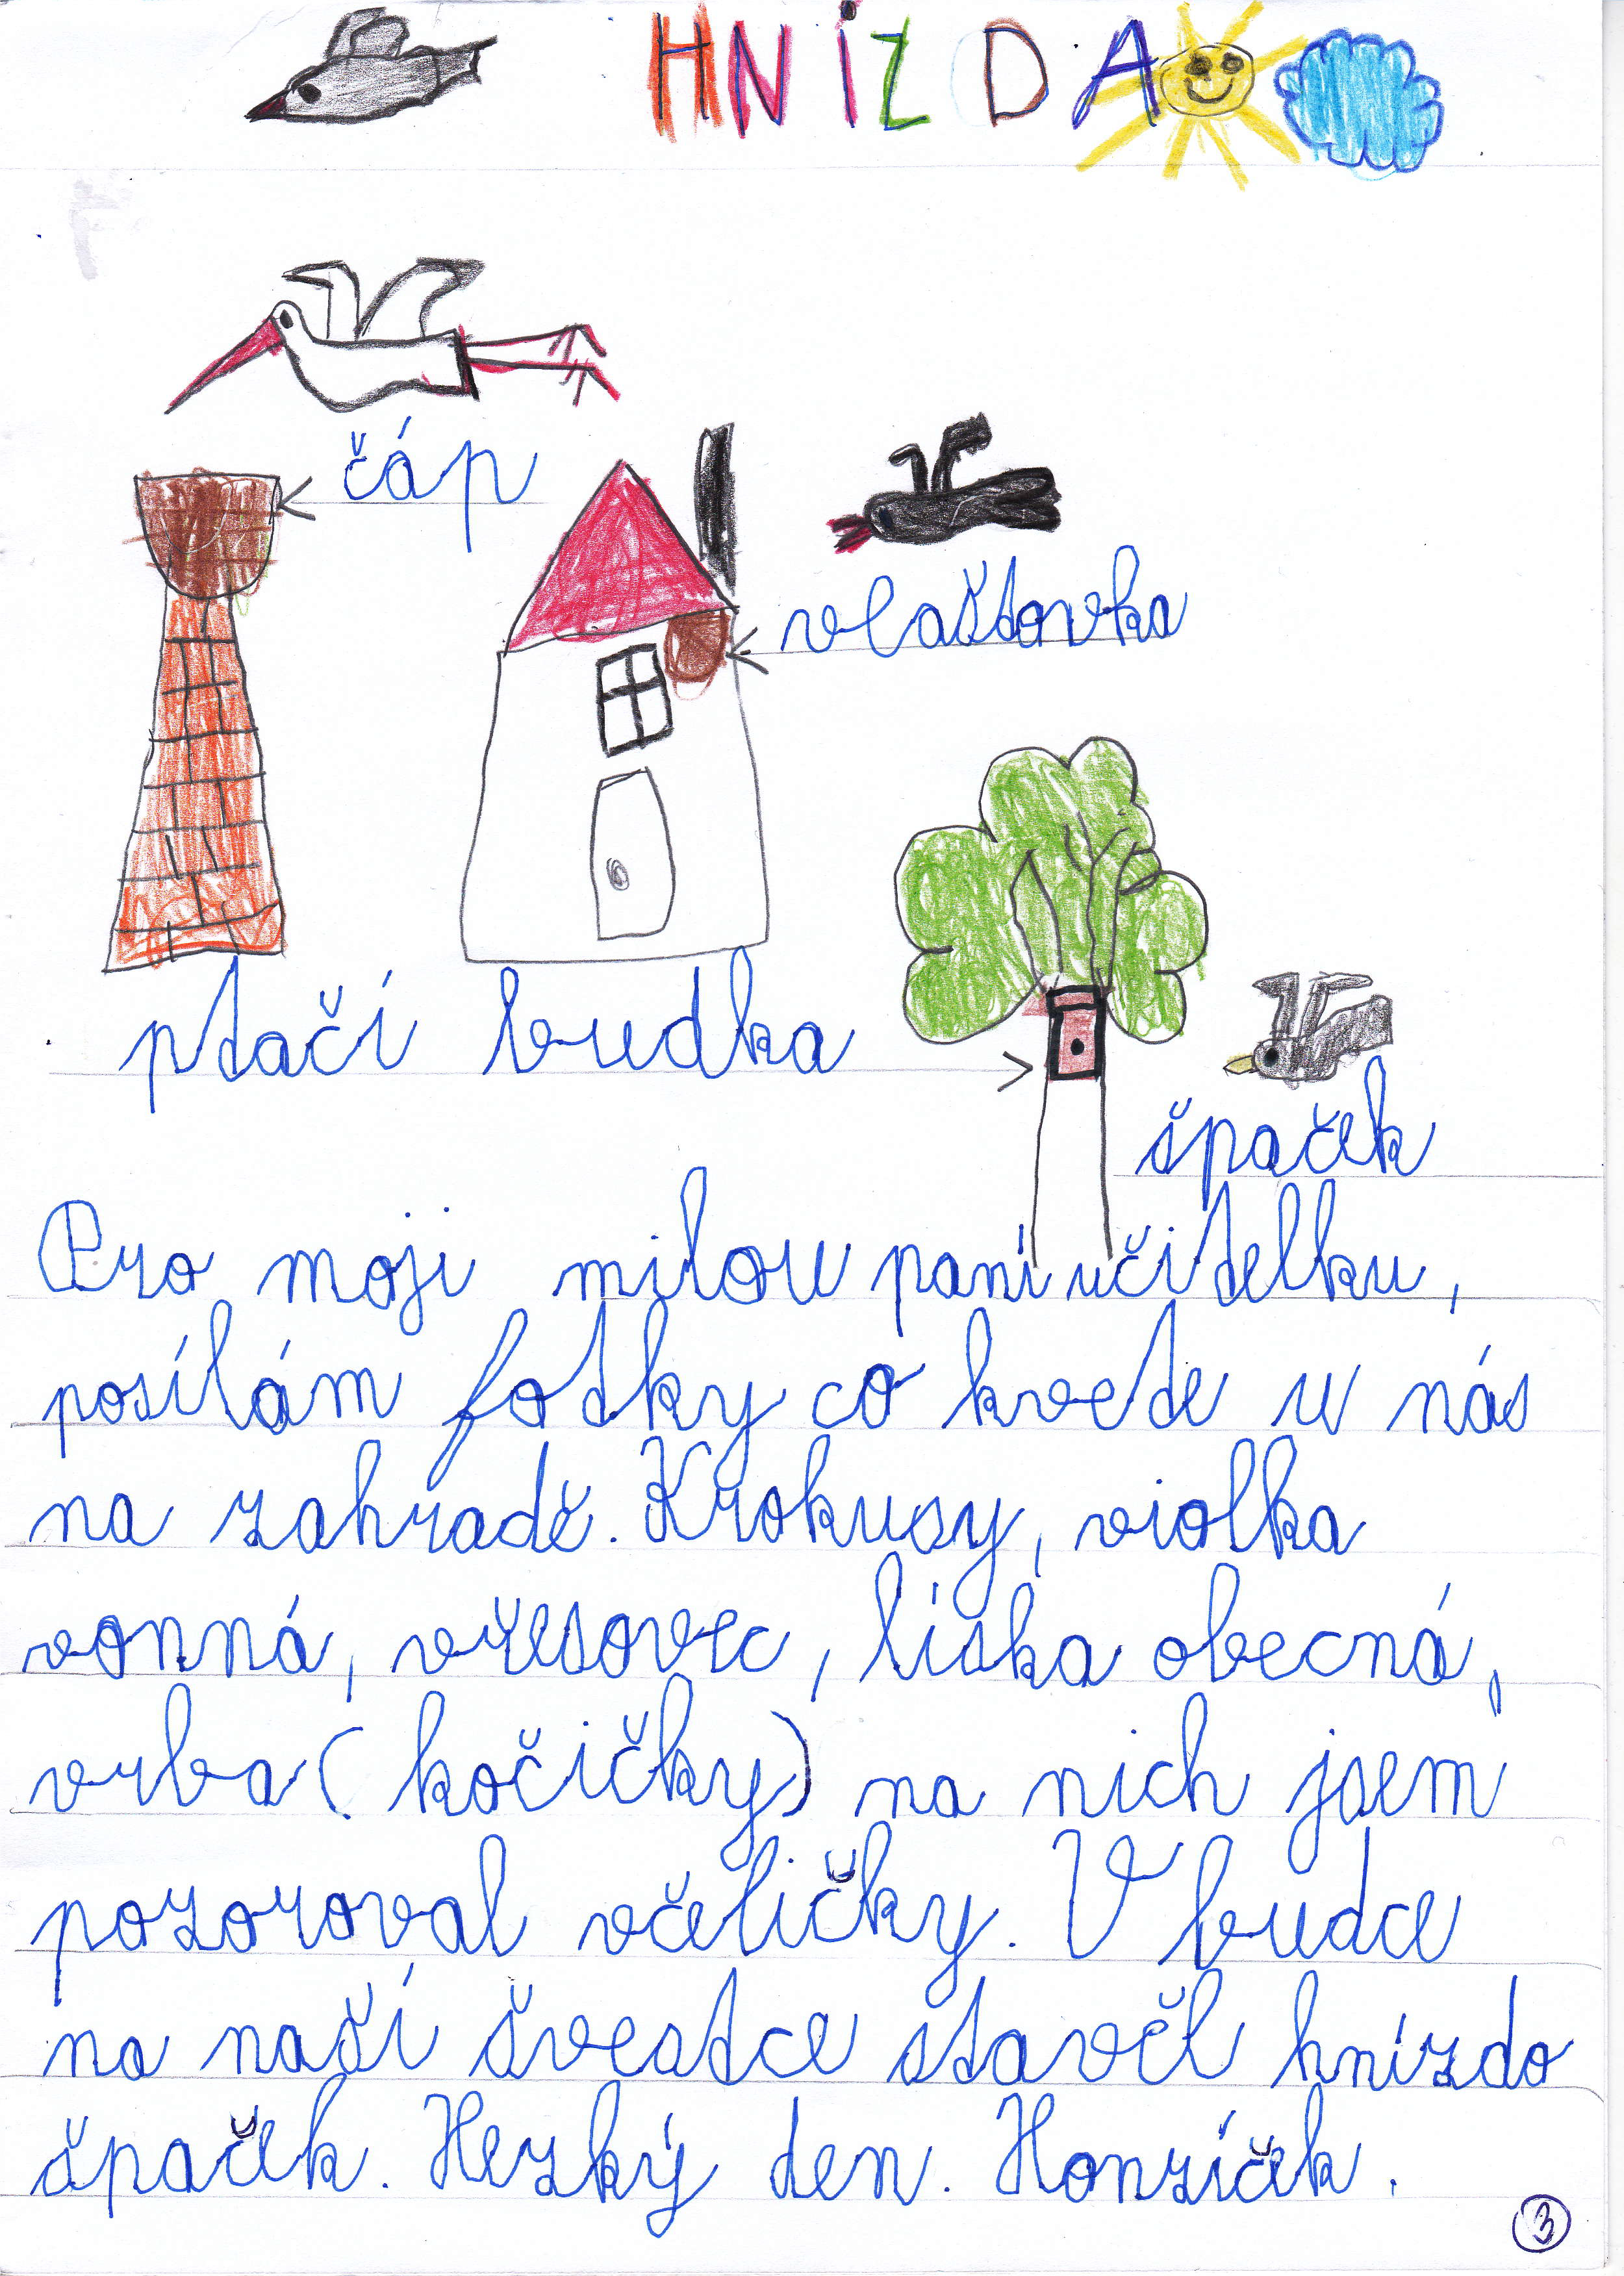 HNÍZDA
čáp
vlaštovka
ptačí budka
špaček
Pro moji milou paní učitelku,
posílám fotky co kvete u nás
na zahradě. Krokusy, violka
vonná, vřesovec, líska obecná,
vrba (kočičky) na nich jsem
pozoroval včeličky. V budce
na naší švestce stavěl hnízdo
špaček. Hezký den. Honzíček.
3